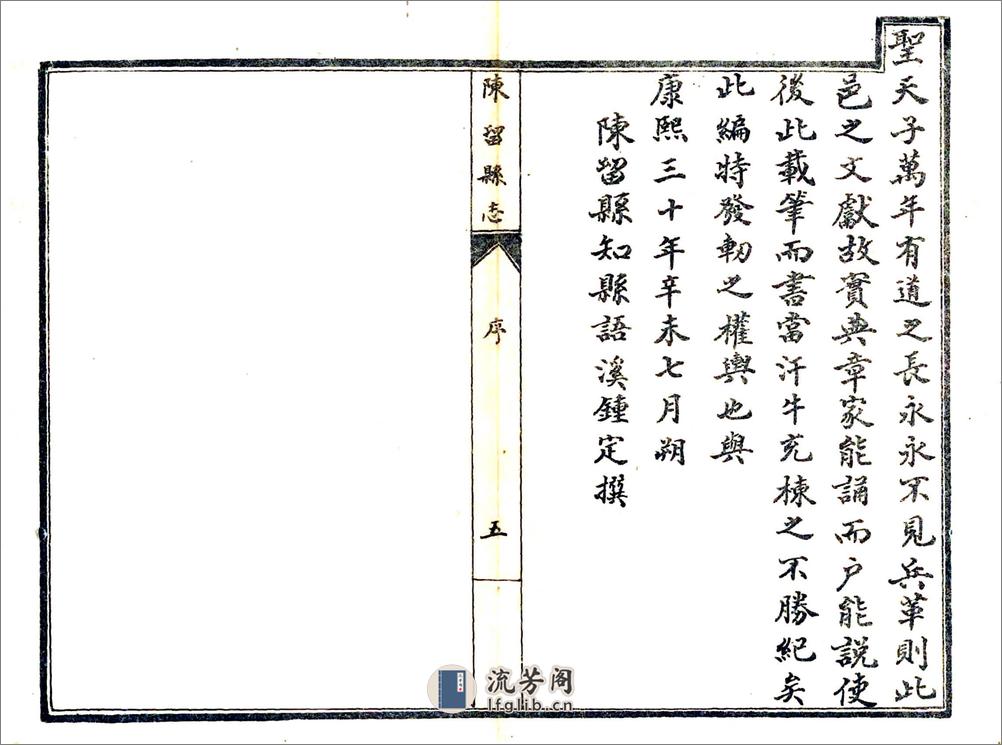 聖天子萬年有道之長永永不見兵革則此
邑之文獻故實典章家能誦而户能說使
後此載筆而書當汗牛充棟之不勝紀矣
此編特發軔之權輿也與
康熙三十年辛未七月朔
陳留縣知縣語溪鍾定撰
陳留縣志
序
五
流芳阁
lfglib.cn